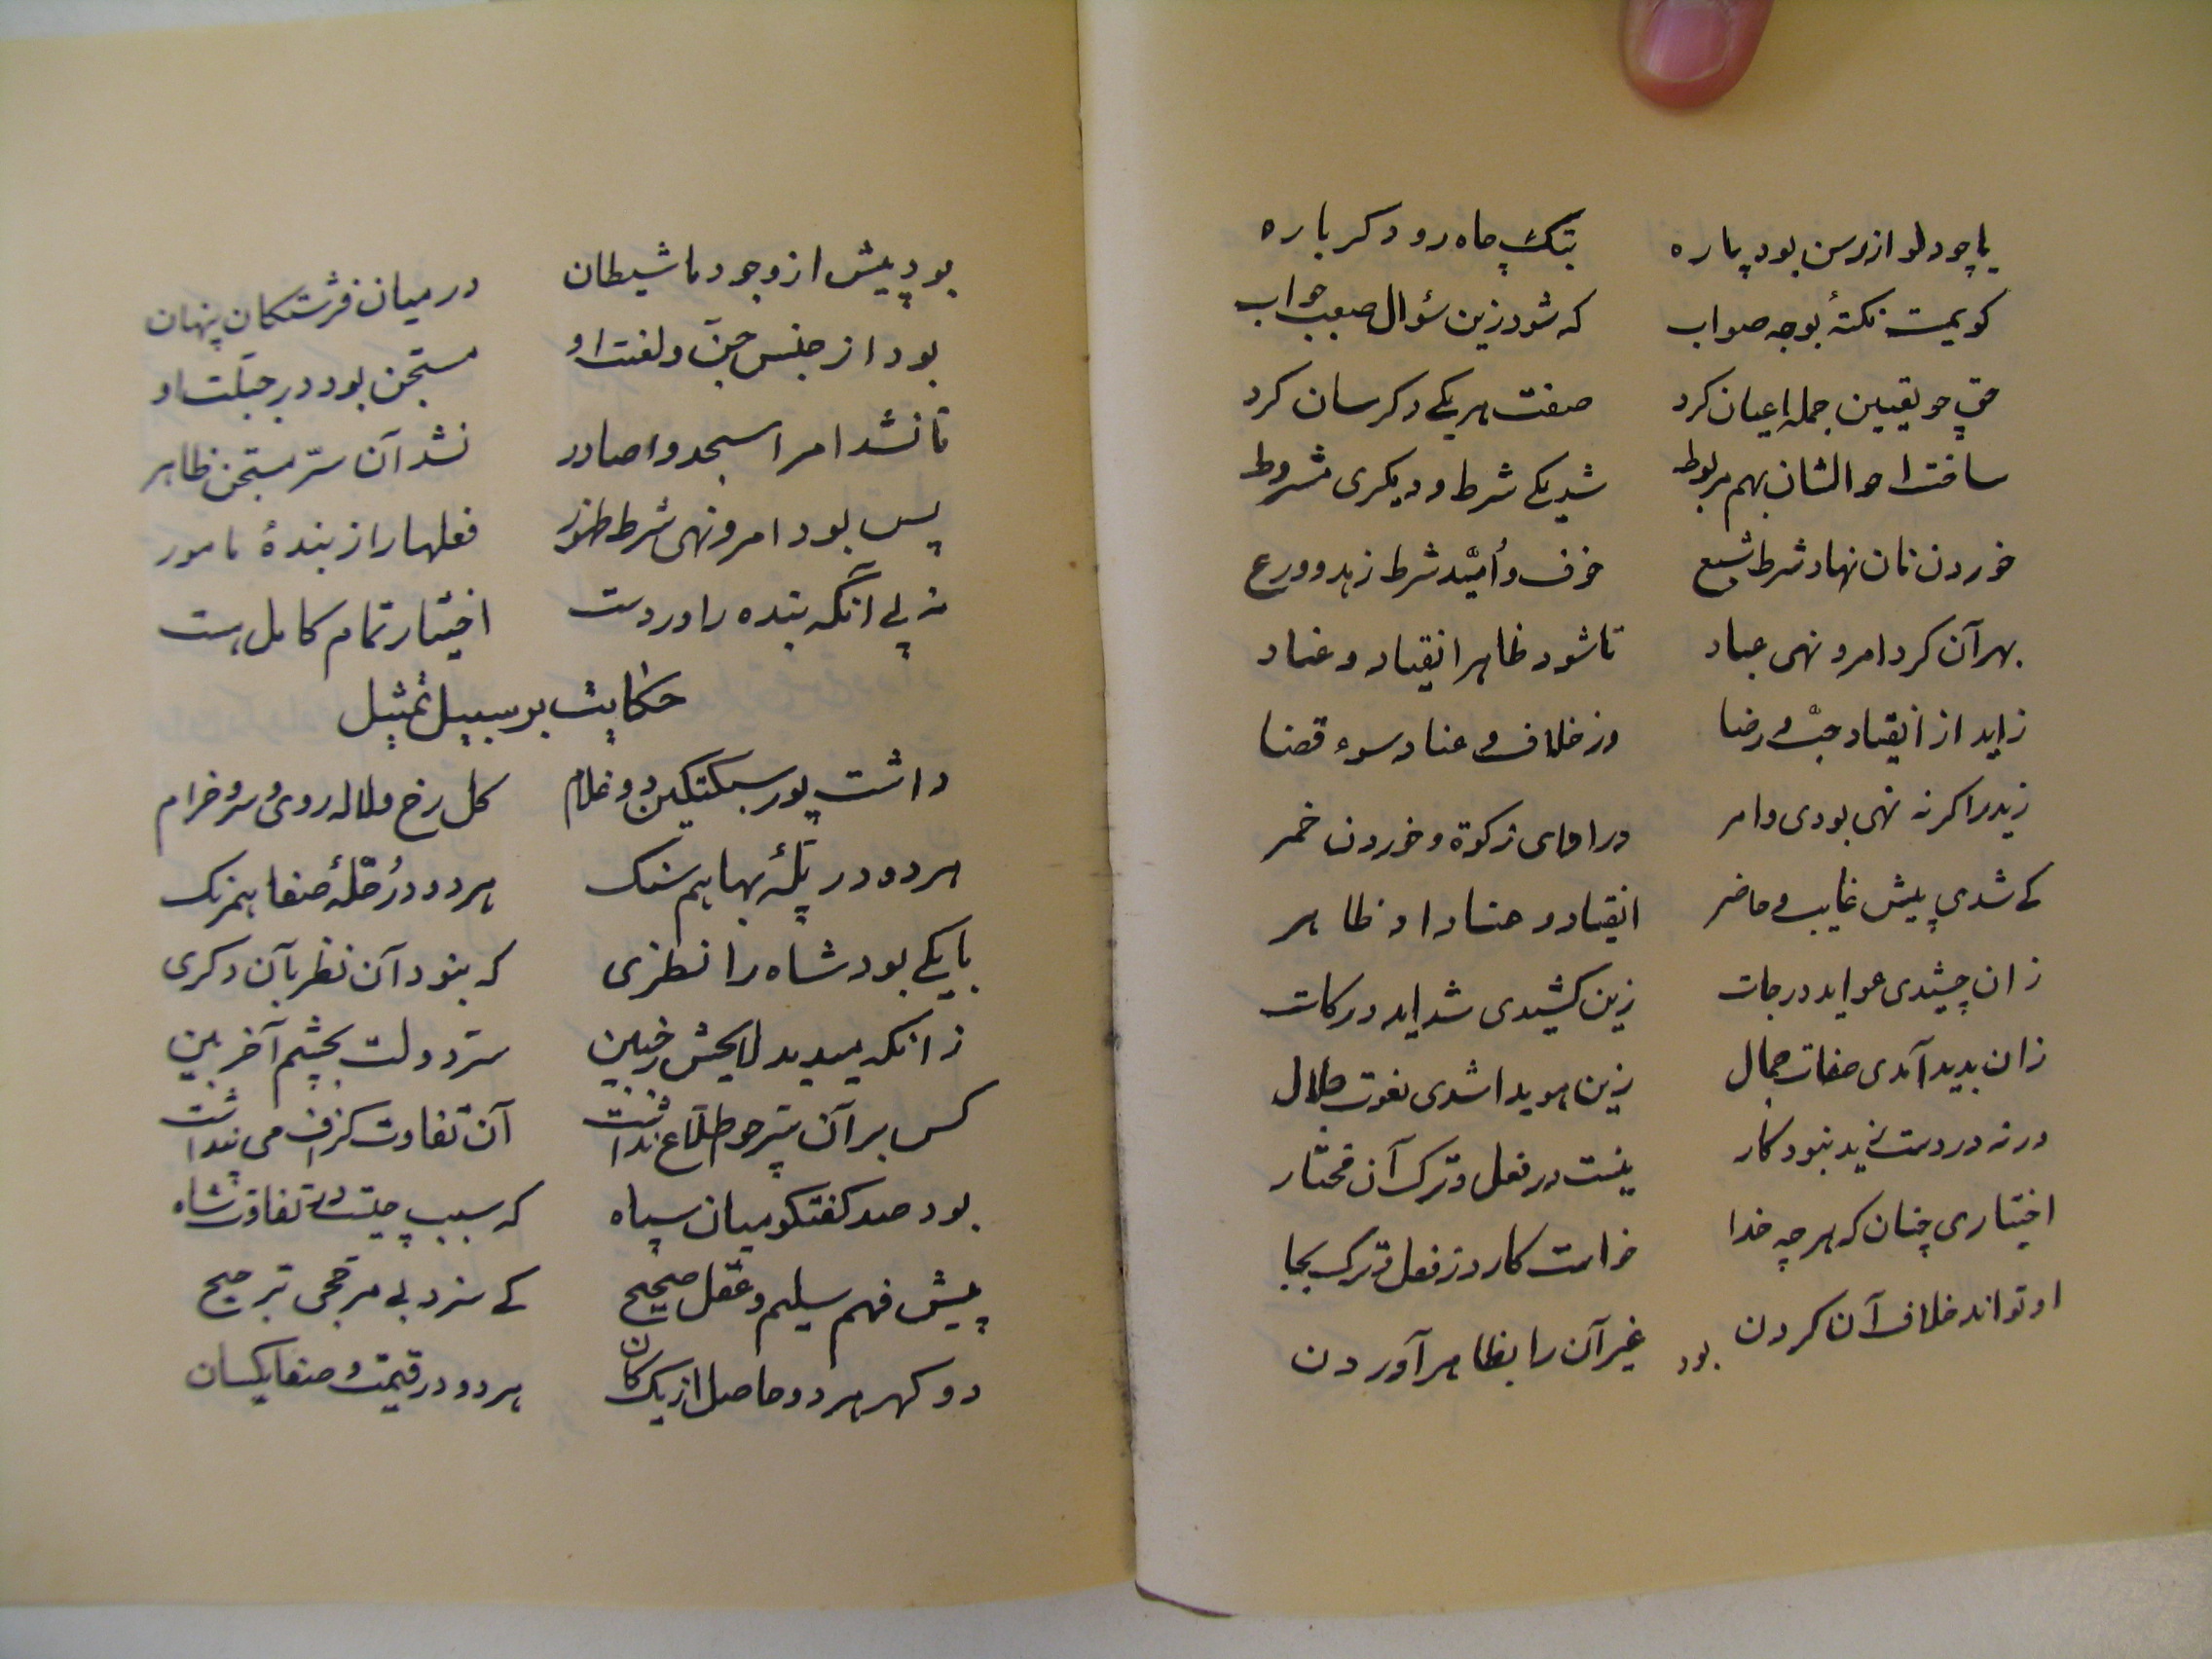 یا چو دلو از رسن بود پاره بتک چاه رود دکر باره
کویمت نکتهٔ بوجه صواب که شود زین سؤال صعب جواب
حق چو تعیین جمله اعیان کرد صفت هر یکے دکرسان کرد
ساخت احوالشان بهم مربوط شد یکے شرط و دیکری مشروط
خوردن نان نهاد شرط شبع خوف و اُمیّد شرط زهد و ورع
بهر آن کرد امر و نهی عباد تا شود ظاهر انقیاد و عناد
زاید از انقیاد حبّ و رضا وز خلاف و عناد سوء قضا
زید را کر نه نهی بودی و امر در ادای زکوة و خوردن خمر
کے شدی پیش غایب و حاضر انقیاد و عناد او ظاهر
زان چشیدی عواید درجات زین کشیدی شداید درکات
زان بدید آمدی صفات جمال زین هویدا شدی نعوت جلال
ورنه در دست زید نبود کار نیست در فعل و ترک آن مختار
اختیاری چنان که هر چه خدا خواست کارد ز فعل و ترک بجا
او تواند خلاف آن کردن غیر آن را بظاهر آوردن
بود
بود پیش از وجود ما شیطان در میان فرشتکان پنهان
بود از جنس جنّ و لعنت او مستجن بود در جبلّت او
تا نشد امر اسجدوا صادر نشد آن سرّ مستجن ظاهر
پس بود امر و نهی شرط ظهور فعلها را از بندهٔ مامور
نه پی آنکه بنده را در دست اختیار تمام کامل هست
حکایت بر سبیل تمثیل
داشت پور سبکتکین دو غلام کل رخ و لاله روی و سرو خرام
هر دو در پلّهٔ بها هم سنک هر دو در حُلّهٔ صفا همرنک
با یکے بود شاه را نظری که نبود آن نظر بآن دکری
زانکه میدید لایحش ز جبین سرّ دولت بچشم آخر بین
کس بر آن سر چو اطلاع نداشت آن تفاوت کزاف می پنداشت
بود صد کفتکو میان سپاه که سبب چیست در تفاوت شاه
پیش فهم سلیم و عقل صحیح کے سزد بے مرجحی ترجیح
دو کهر هر دو حاصل از یک کان هر دو در قیمت و صفا یکسان